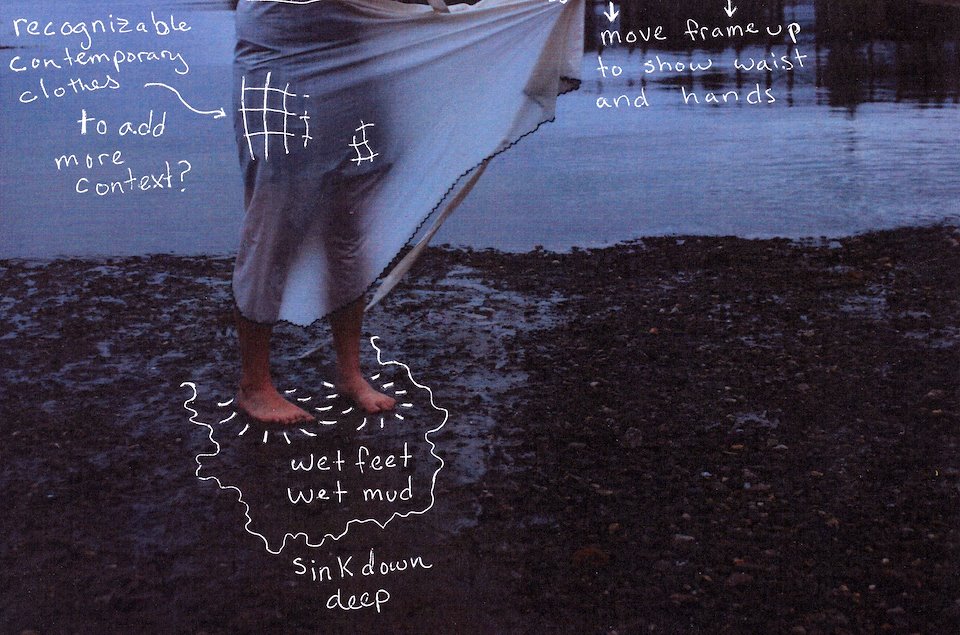 recognizable
contemporary
clothes
to add
more
context?
move frame up
to show waist
and hands
wet feet
wet mud
sink down
deep